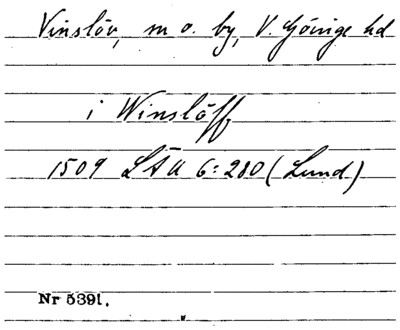 Vinslöv, m o. by, V. Göinge hd
i Winslöff
1509 LÄU 6:280 (Lund)
Nr 5391.